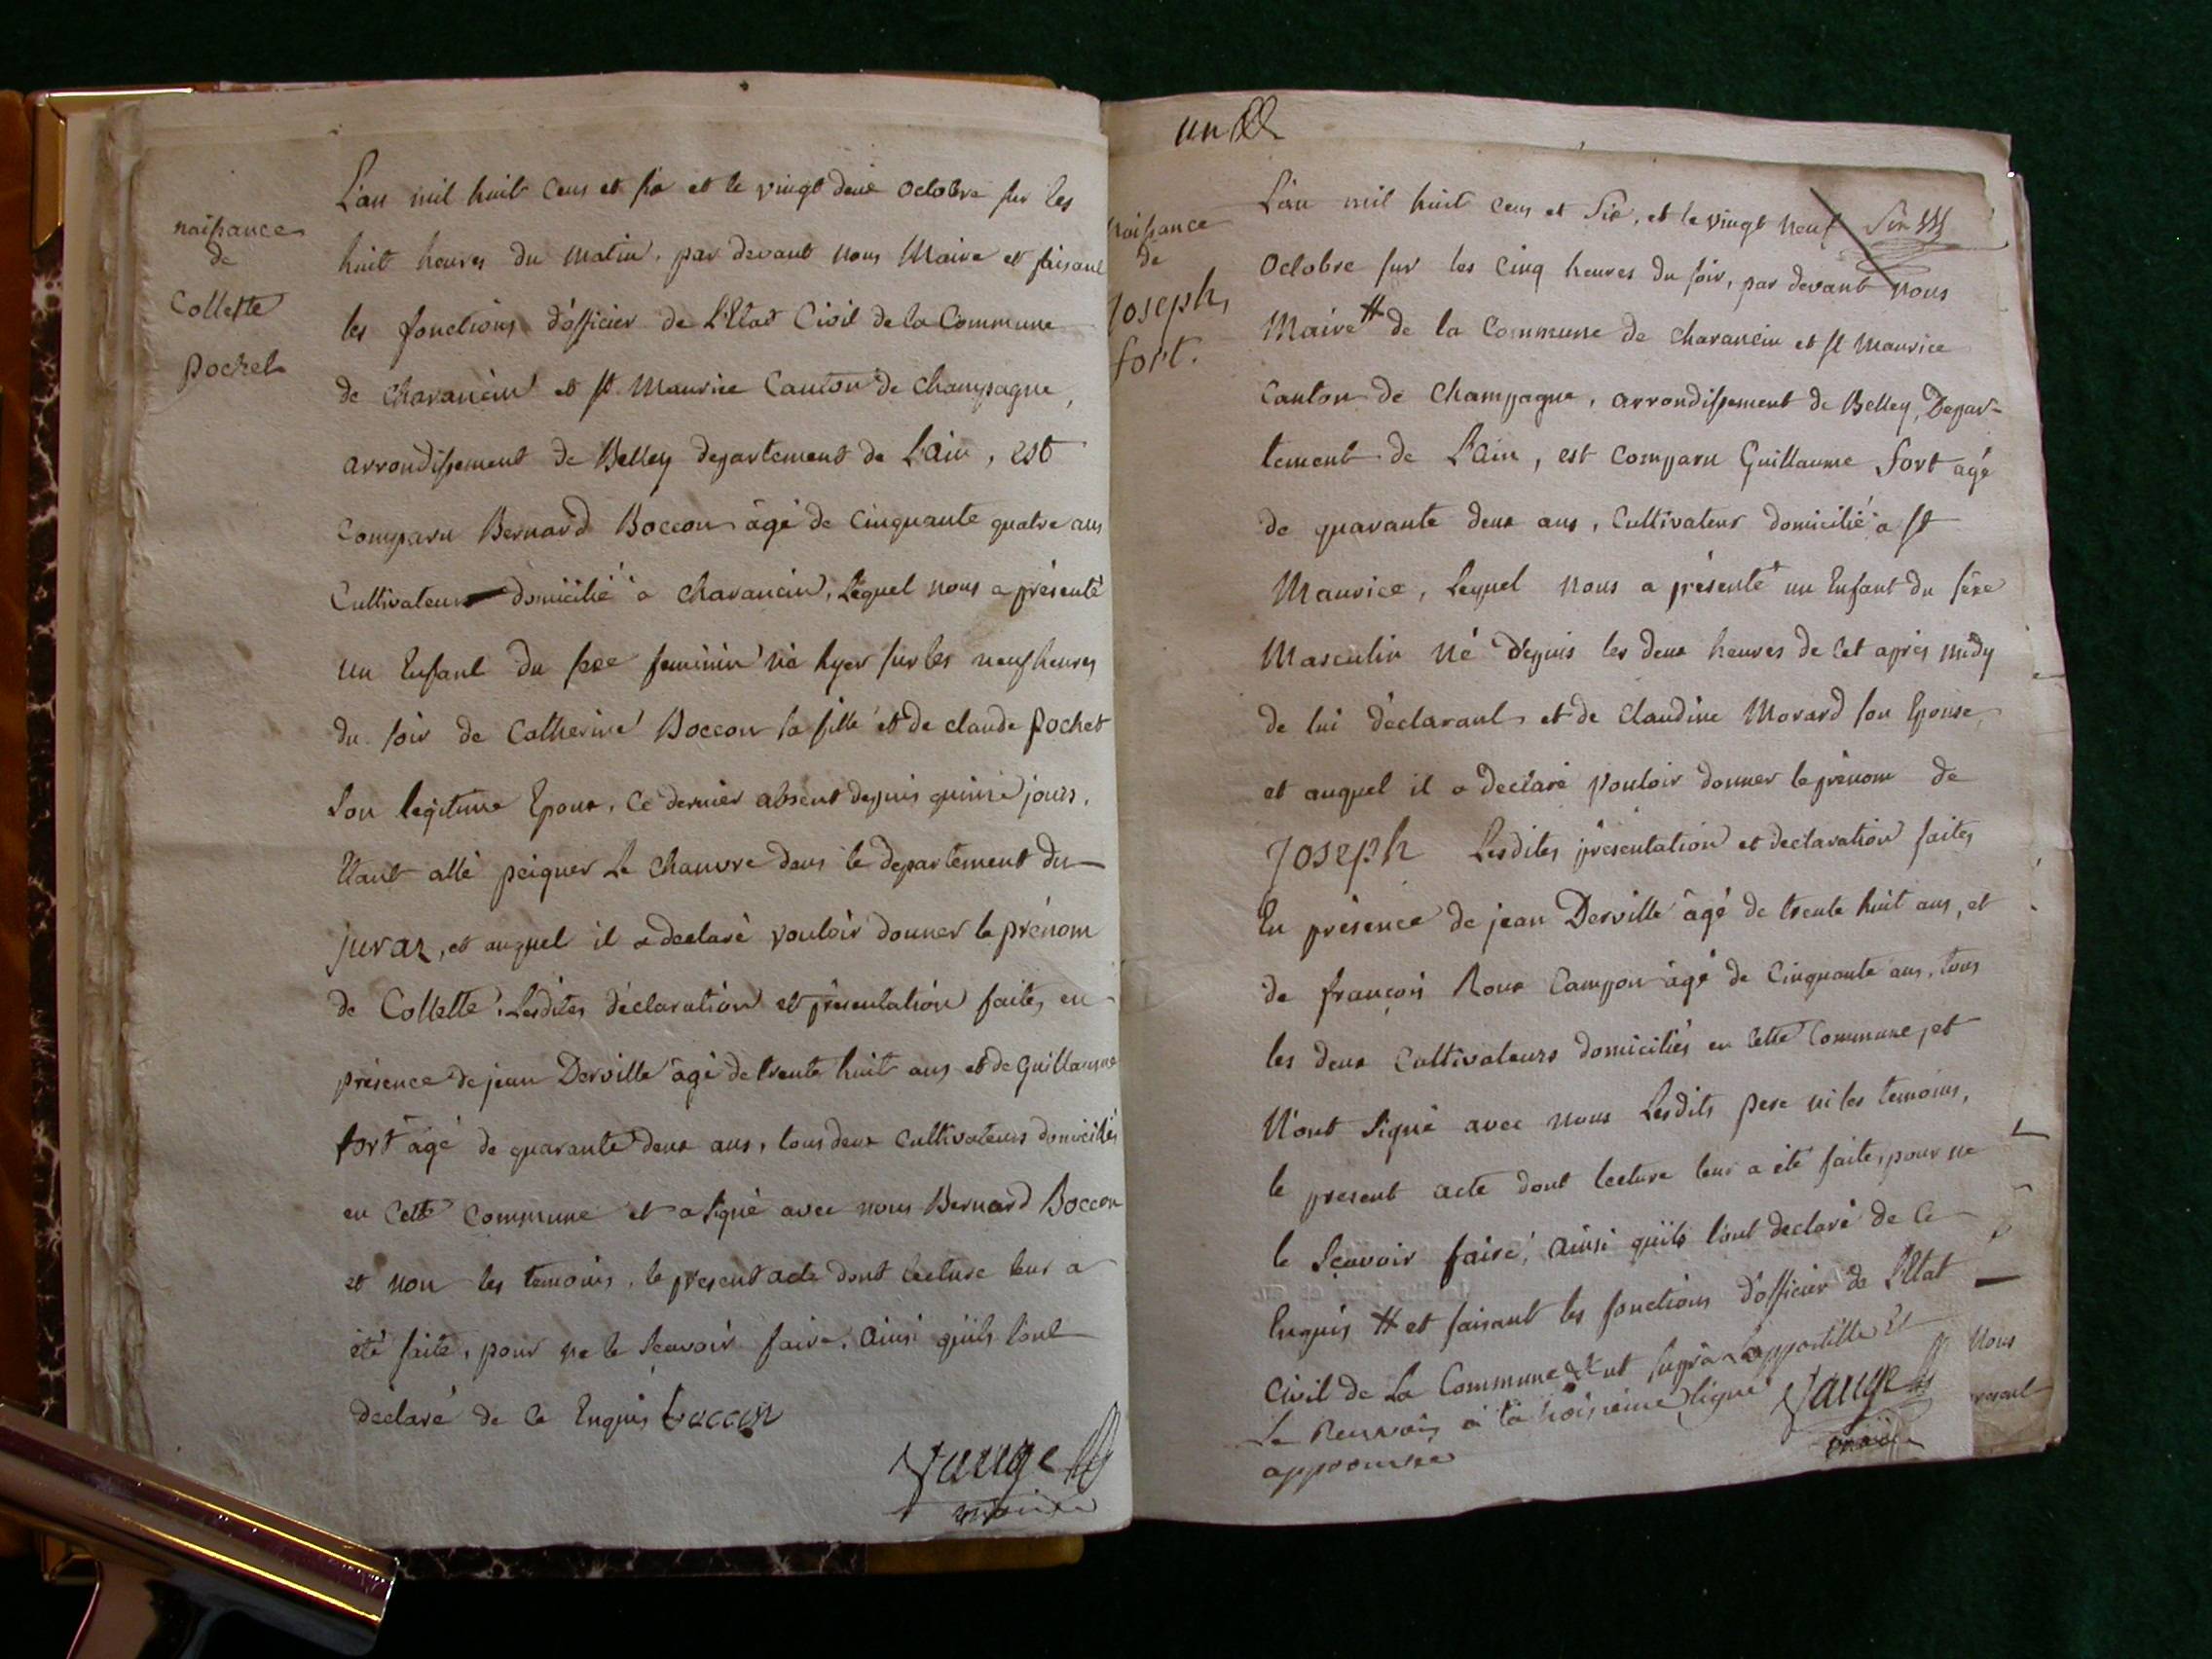 naissance
de
Collette
pochet
L'an mil huit cens et six et le vingt deux octobre sur les
huit heures du matin, par devant nous Maire et faisant
les fonctions d'officier de L'Etat Civil de la Commune
de charancin et st Maurice Canton de champagne,
arrondissement de Belley departement de L'ain, est
Comparu Bernard Boccon âgé de Cinquante quatre ans
Cultivateur domicilié à charancin, Lequel nous a présenté
un Enfant du sexe feminin né hyer sur les neuf heures
du soir de Catherine Boccon sa fille et de claude pochet
son legitime Epoux, Ce dernier absent depuis quinze jours,
Etant allé peigner Le chanvre dans le departement du
juraz, et auquel il a declaré vouloir donner le prénom
de Collette, Lesdites déclaration et présentation faites en
présence de jean Derville âgé de trente huit ans et de Guillaume
fort âgé de quarante deux ans, tous deux Cultivateurs domiciliés
en Cette Commune et a signé avec nous Bernard Boccon
et non les temoins, le present acte dont lecture leur a
été faite, pour ne le sçavoir faire, ainsi qu'ils l'ont
déclaré de Ce Enquis boccon
Vauge
maire
un
naissance
de
Joseph
fort.
L'an mil huit cens et Six, et le vingt neuf Six
Octobre sur les Cinq heures du soir, par devant nous
Maire # de la Commune de charancin et st Maurice
Canton de Champagne, arrondissement de Belley, Depar-
tement de L'ain, est Comparu Guillaume fort agé
de quarante deux ans, Cultivateur domicilié a st
Maurice, Lequel nous a présenté un Enfant du sexe
Masculin né depuis les deux heures de Cet après midy
de lui déclarant et de Claudine Morard son Epouse,
et auquel il a declaré vouloir donner le prénom de
Joseph Lesdites présentation et declaration faites
En présence de jean Derville âgé de trente huit ans, et
de françois Roux Campon âgé de Cinquante ans, tous
les deux Cultivateurs domiciliés en Cette Commune, et
N'ont signé avec nous Lesdits pere ni les temoins,
le present acte dont lecture leur a été faite, pour ne
le sçavoir faire, ainsi qu'ils l'ont declaré de Ce
Enquis # et faisant les fonctions d'officier de L'Etat
Civil de La Commune ut supra Lappostille Et
Le Renvois à la troisieme ligne Vauge
approuvée
maire
Nous
present